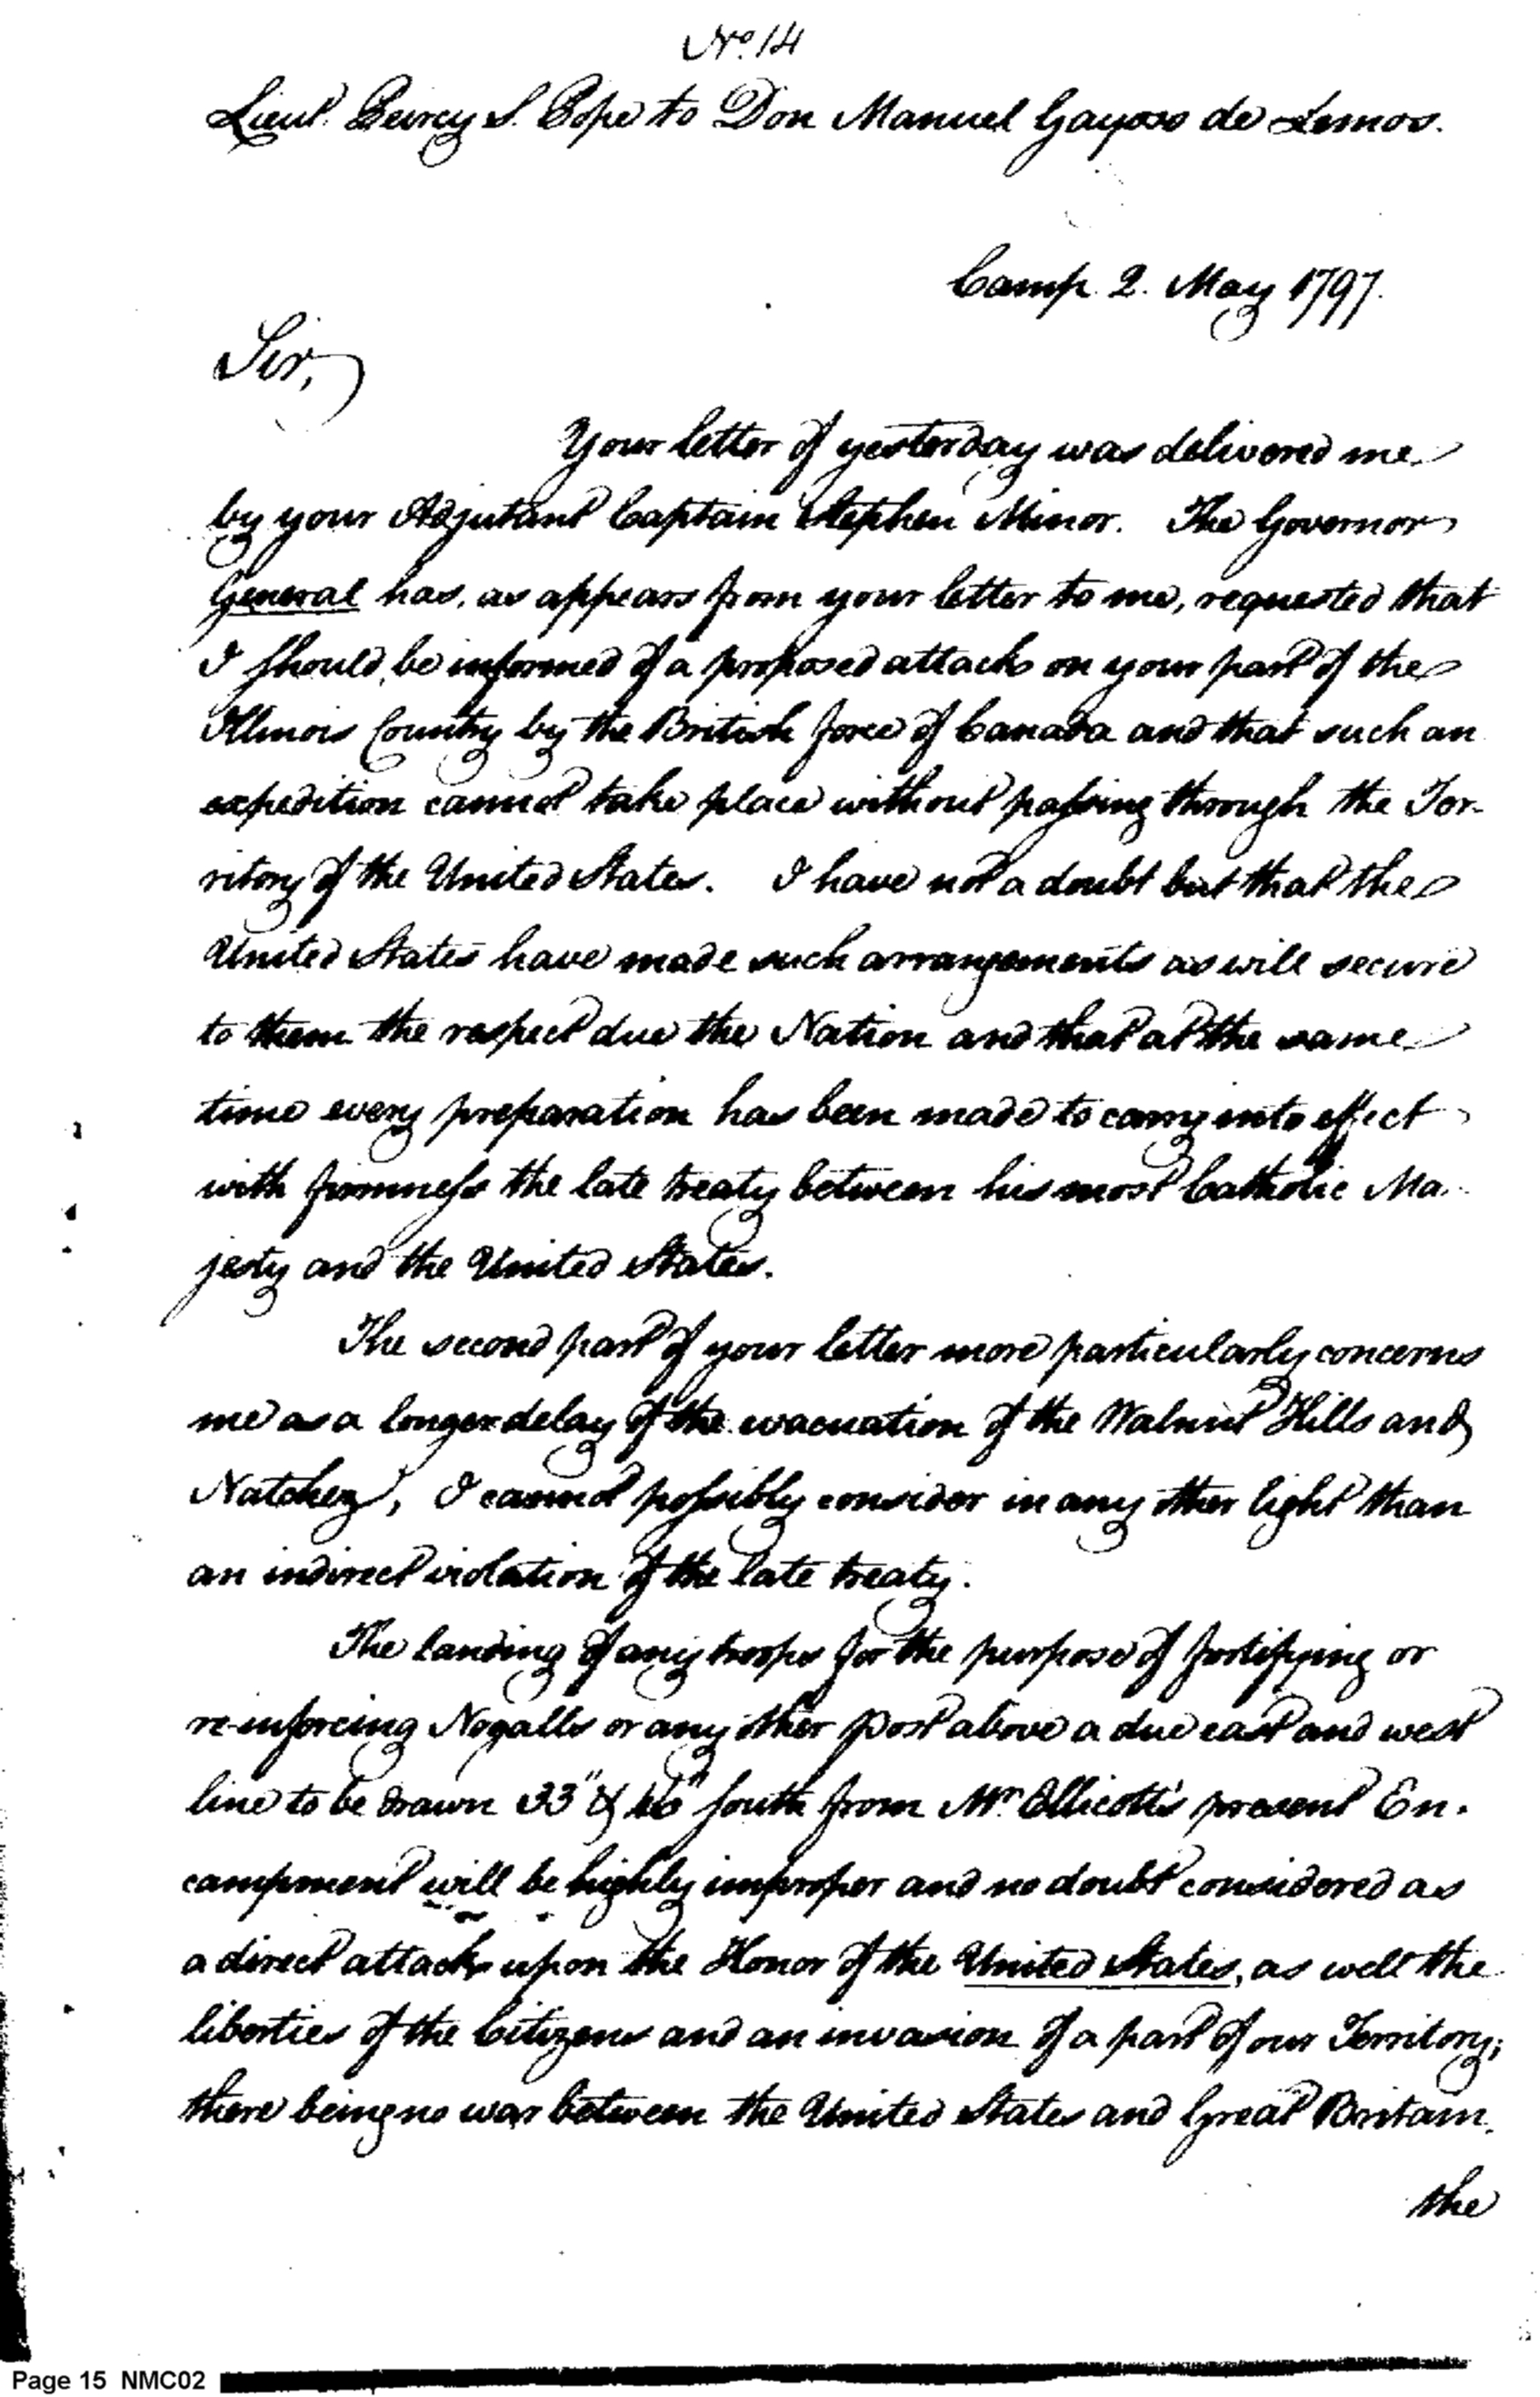 No. 14
Lieut. Peircy S. Pope to Don Manuel Gayoso de Lemos.
Camp. 2. May 1797.
Sir,
Your letter of yesterday was delivered me
by your Adjutant Captain Stephen Minor. The Governor
General has, as appears from your letter to me, requested that
I should be informed of a proposed attack on your part of the
Illinois Country by the British force of Canada and that such an
expedition cannot take place without passing through the Ter-
ritory of the United States. I have not a doubt but that the
United States have made such arrangements as will secure
to them the respect due the Nation and that at the same
time every preparation has been made to carry into effect
with firmness the late treaty between his most Catholic Ma-
jesty and the United States.
The second part of your letter more particularly concerns
me as a longer delay of the evacuation of the Walnut Hills and
Natchez, I cannot possibly consider in any other light than
an indirect violation of the late treaty.
The landing of any troops for the purpose of fortifying or
re-inforcing Nogalls or any other post above a due east and west
line to be drawn 33" & 46" South from Mr. Ellicott's present En-
campment will be highly improper and no doubt considered as
a direct attack upon the Honor of the United States, as well the
liberties of the Citizens and an invasion of a part of our Territory;
there being no war between the United States and Great Britain.
the
Page 15 NMC02